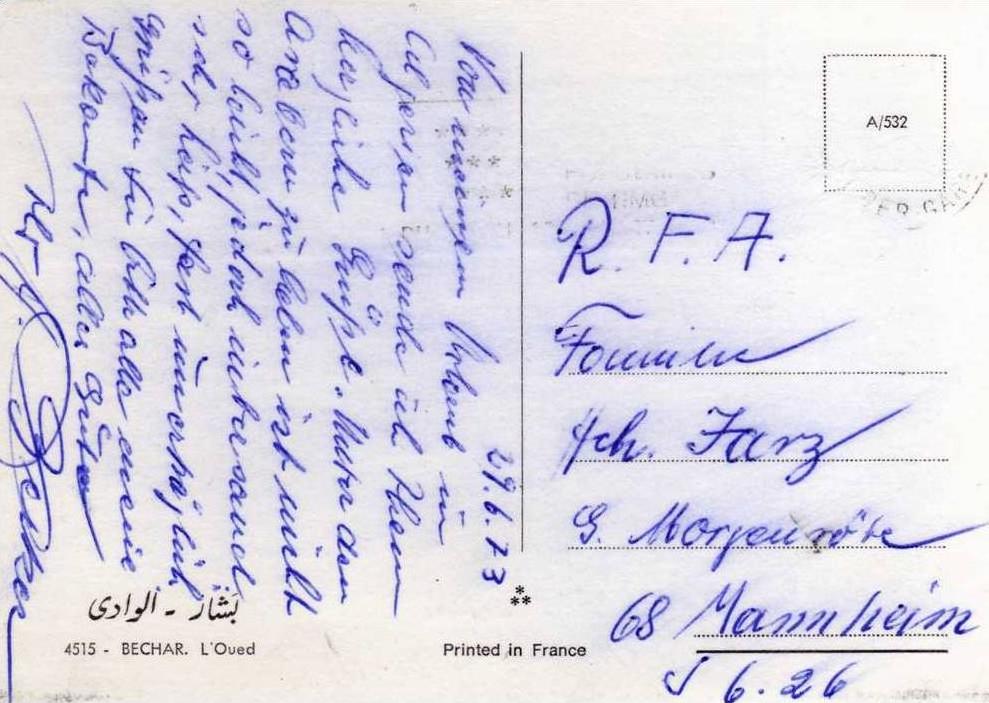 29.6.73
Von meinem Urlaub in
Algerien sende ich Ihnen
herzliche Grüße. Unter den
Arabern zu leben ist nicht
so leicht, jedoch interessant,
sehr heiss, fast unerträglich
grüßen Sie bitte alle meine
Bekante, alles Gute
Ihr H. Becker
A/532
R. F. A.
Familie
Hch.
G. Morgenröte
68 Mannheim
J 6. 26
بشار - الوادى
4515 - BECHAR. L'Oued
Printed in France